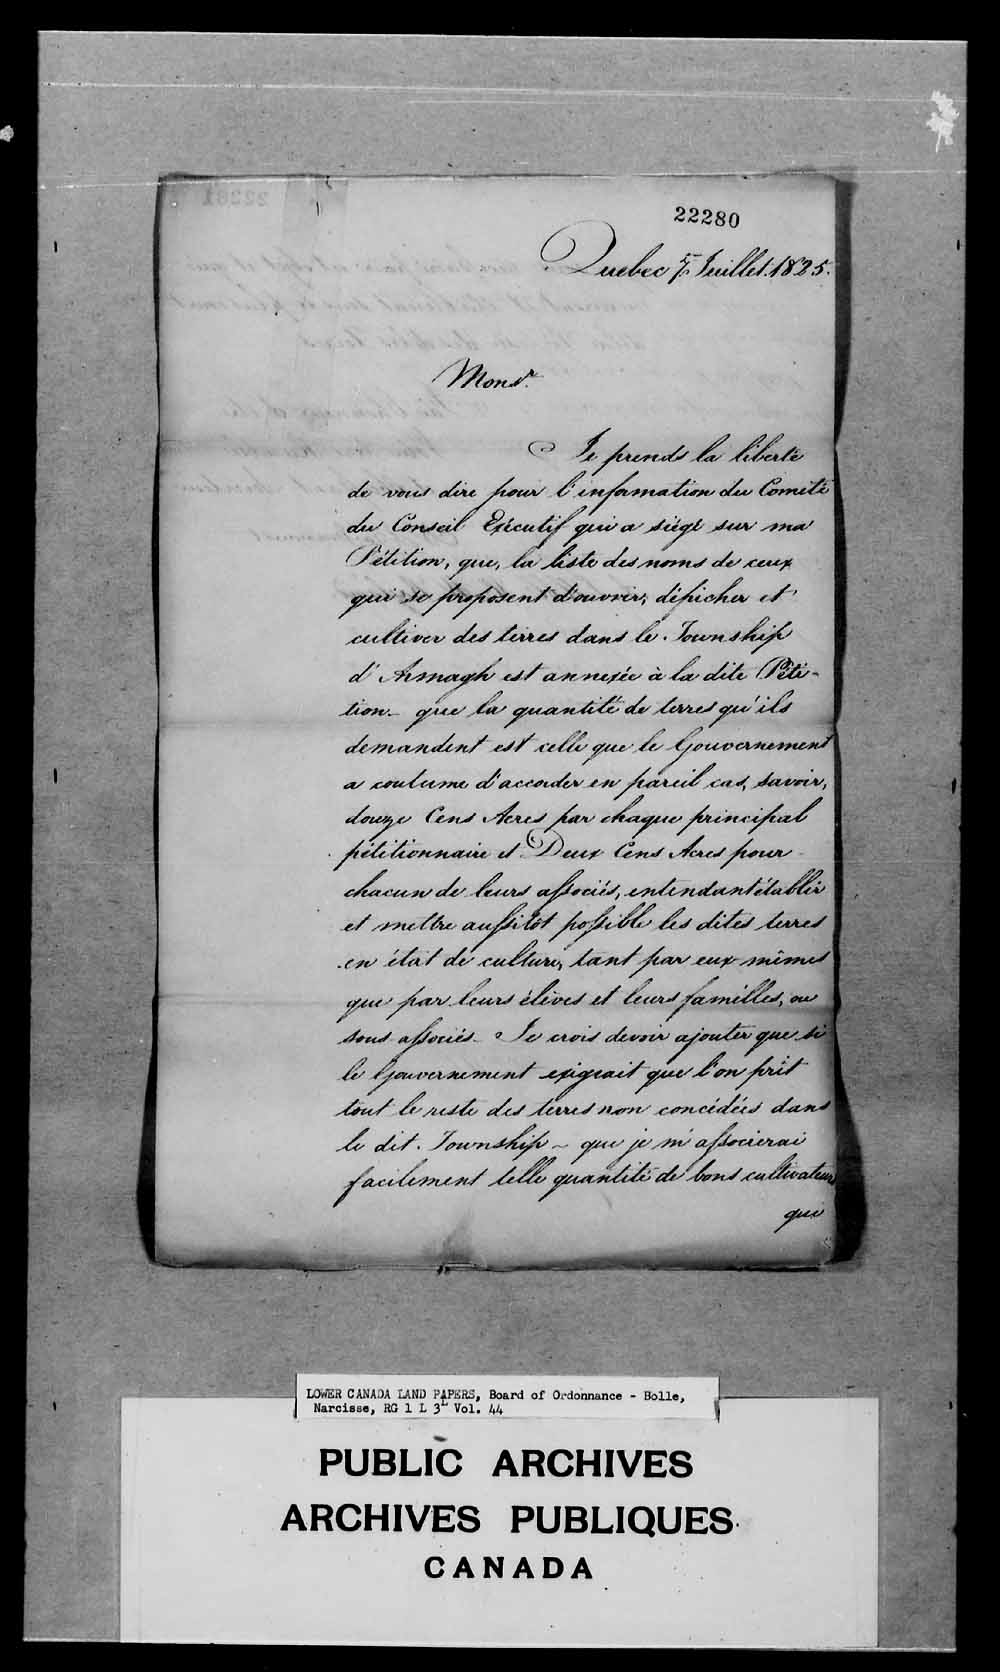 22280
Quebec 5 Juillet. 1825.
Monsr.
Je prends la liberté
de vous dire pour l'information du Comité
du Conseil Exécutif qui a siégé sur ma
Pétition, que, la liste des noms de ceux
qui se proposent d'ouvrir, défricher et
cultiver des terres dans le Township
d'Armagh est annexée à la dite Péti-
tion - que la quantité de terres qu'ils
demandent est celle que le Gouvernement
a coutume d'accorder en pareil cas, savoir,
douze Cens Acres par chaque principal
pétitionnaire et Deux Cens Acres pour
chacun de leurs associés, entendant établir
et mettre aussitôt possible les dites terres
en état de culture, tant par eux-mêmes
que par leurs élèves et leurs familles, ou
sous-associés - Je crois devoir ajouter que si
le Gouvernement exigeait que l'on prît
tout le reste des terres non concédées dans
le dit Township ~ que je m'associerai
facilement telle quantité de bons cultivateurs
que
LOWER CANADA LAND PAPERS, Board of Ordonnance - Bolle,
Narcisse, RG 1 L 3L Vol. 44
PUBLIC ARCHIVES
ARCHIVES PUBLIQUES
CANADA